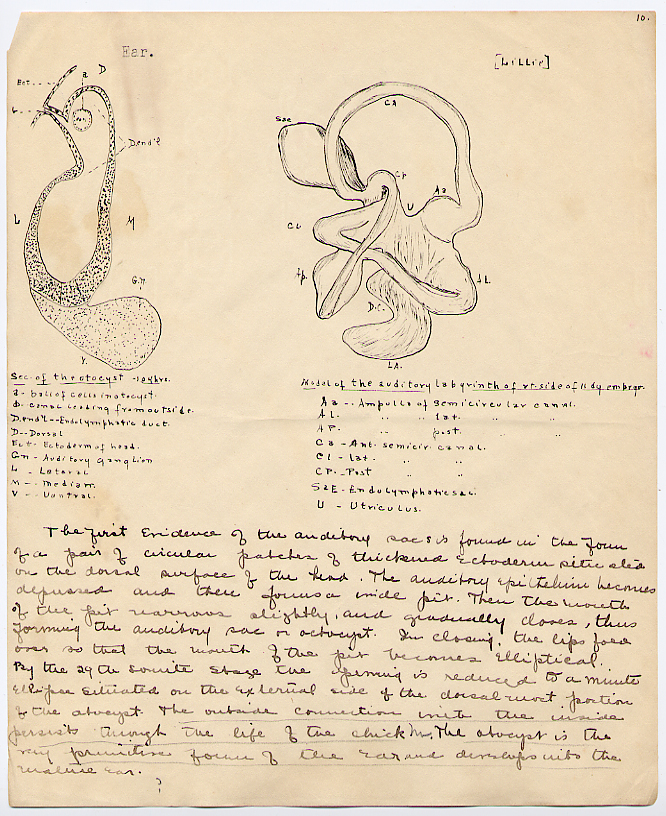 10.
Ear.
[Lillie]
Ect
a
D
Dend'l
L
M
G.n.
V.
Sac
Ca
Cp
U
Aa
Cl
Ap.
AL.
D.C.
LA.
Sec. of the otocyst -104 hrs.
a - ball of cells in otocyst.
b - canal leading from outside.
Dend'l -- Endolymphatic duct.
D -- Dorsal
Ect - Ectoderm of head.
Gn - Auditory ganglion
L - Lateral
M -- Median.
V -- Ventral.
Model of the auditory labyrinth of rt-side of 11 dy embryo.
Aa -- Ampulla of semicircular canal.
AL. " lat. " "
AP. " post. " "
Ca - Ant. semicir. canal.
Cl - lat. " "
CP. - Post " "
SaE - Endolymphatic sac.
U - Utriculus.
The first Evidence of the auditory sacs is found in the form
of a pair of circular patches of thickened Ectoderm situated
on the dorsal surface of the head. The auditory Epithelium becomes
depressed and there forms a wide pit. Then the mouth
of the pit narrows slightly, and gradually closes, thus
forming the auditory sac or otocyst. In closing, the lips fold
over so that the mouth of the pit becomes Elliptical.
By the 29th somite stage the opening is reduced to a minute
Ellipse situated on the External side of the dorsal most portion
of the otocyst. The outside connection with the inside
persists through the life of the chick. The otocyst is the
very primitive form of the Ear and develops into the
mature Ear.
?